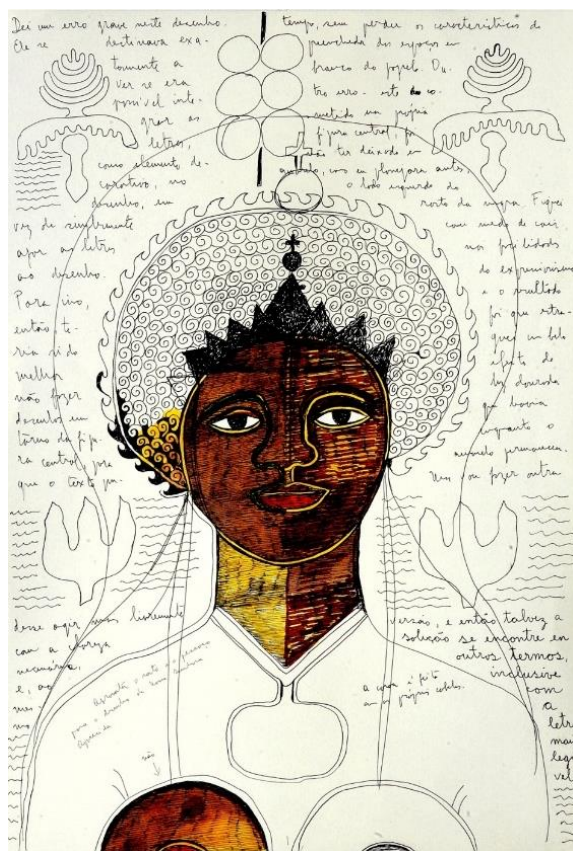 Dei um erro grave neste desenho.
Ele se destinava exa-
tamente a
ver se era
possível inte-
grar as
letras,
como elemento de-
corativo, no
desenho, em
vez de simplesmente
apor as letras
ao desenho.
Para isso,
então, te-
ria sido
melhor
não fazer
desenhos em
torno da figu-
ra central, para
que o texto pu-
desse agir mais livremente
com a clareza
necessária,
e, ao
mes-
mo
tempo, sem perder as características de
dos espaços em
branco do papel. Ou-
tro erro - este co-
metido na própria
figura central, foi
não ter deixado em
amarelo, como eu planejara antes,
o lado esquerdo do
rosto da negra. Fiquei
com medo de cair
nas facilidades
do expressionismo
e o resultado
foi que estra-
guei um belo
efeito de
luz dourada
que havia
enquanto o
amarelo permanecia.
Vou fazer outra
versão, e então talvez a
solução se encontre em
outros termos,
inclusive
com
a
letra
mais
legí
vel
para o desenho de
a coroa é feita
com os próprios cabelos.
não